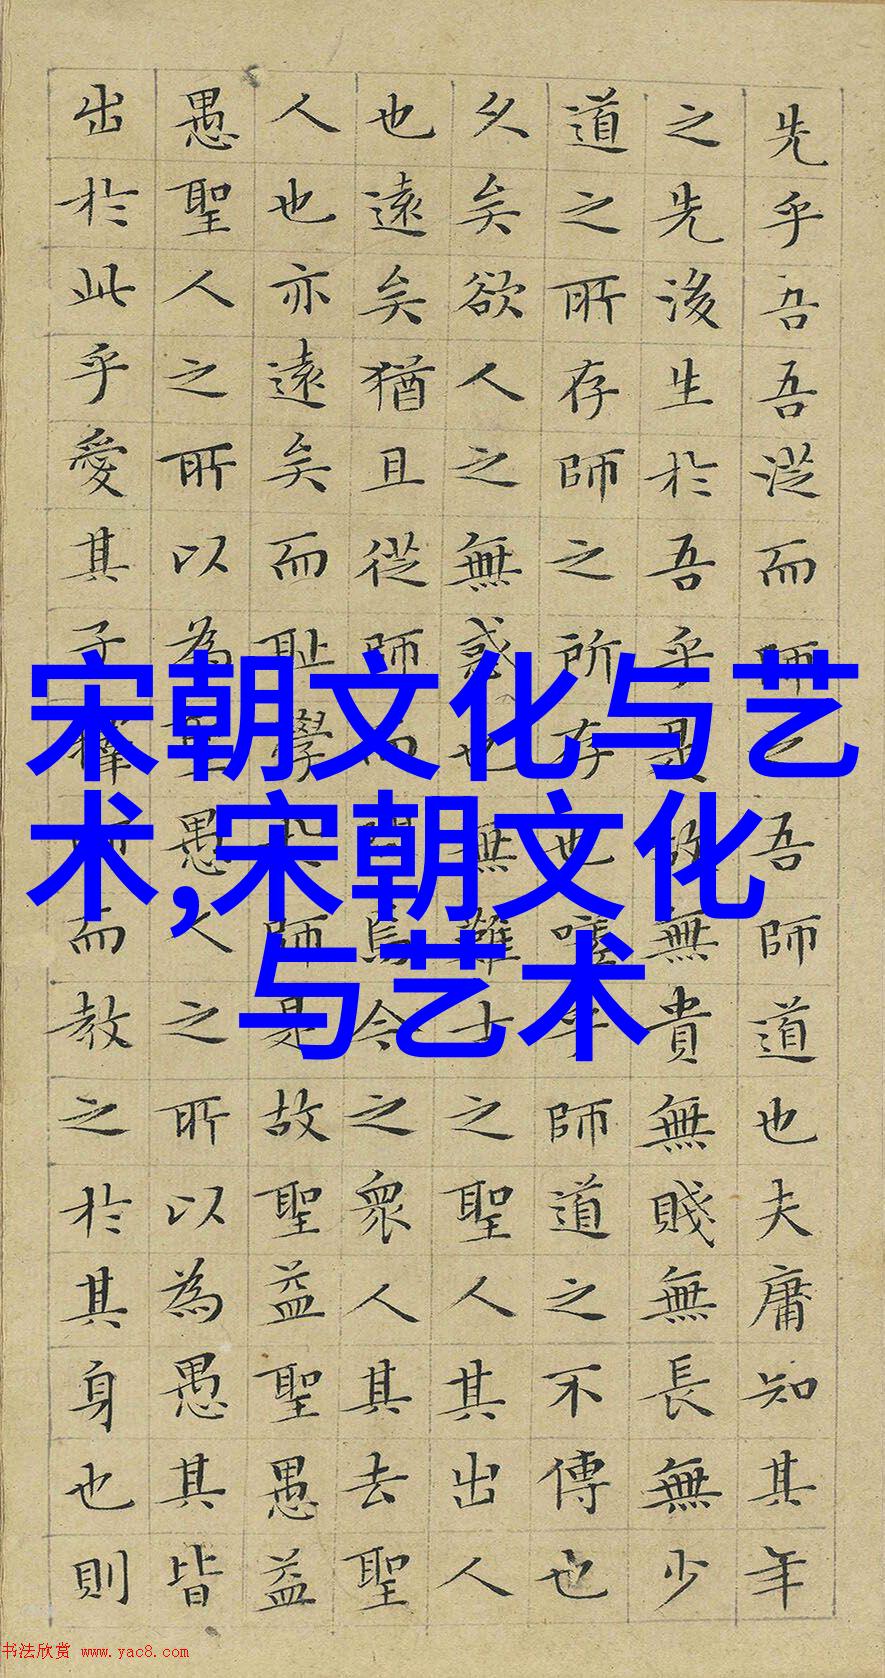 先乎吾吾從而師之吾師道也夫庸知其年
之先後生於吾乎是故無貴無賤無長無少
道之所存師之所存也嗟乎師道之不傳也
久矣欲人之無惑也無難古之聖人其出人
也遠矣猶且從師而問焉今之眾人其去聖
人也亦遠矣而耻學於師是故聖益聖愚益
愚聖人之所以為聖愚人之所以為愚其皆
出於此乎愛其子擇師而教之於其身也則
宋朝文化与艺
术,宋朝文化
与艺术
书法欣赏 www.yac8.com